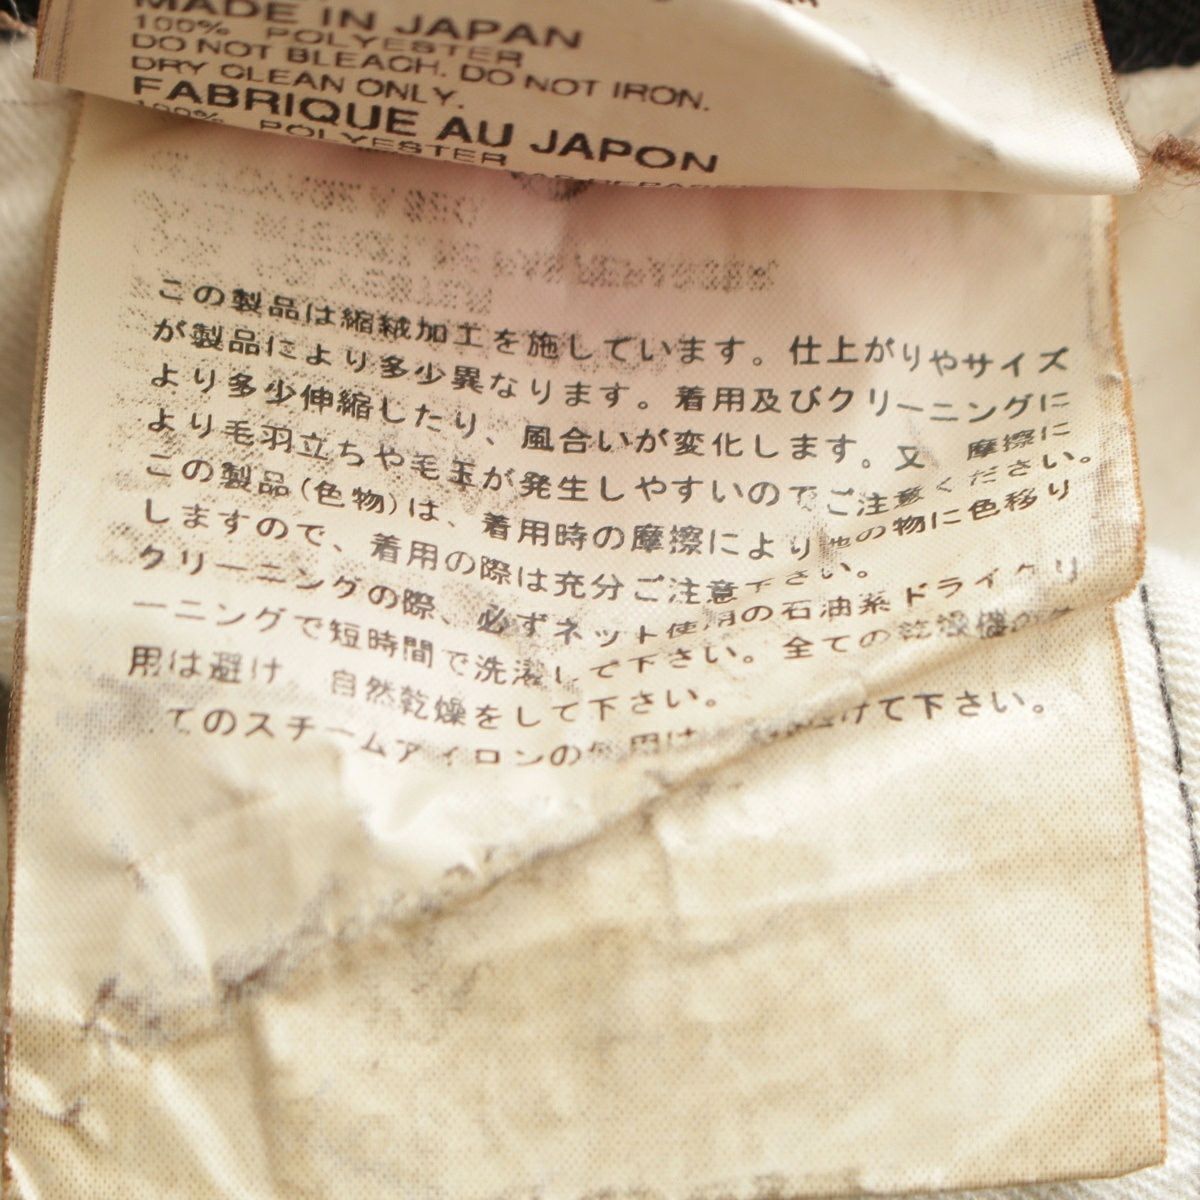 MADE IN JAPAN
100% POLYESTER
DO NOT BLEACH. DO NOT IRON.
DRY CLEAN ONLY.
FABRIQUE AU JAPON
100% POLYESTER
この製品は縮絨加工を施しています。仕上がりやサイズ
が製品により多少異なります。着用及びクリーニングに
より多少伸縮したり、風合いが変化します。又 摩擦に
より毛羽立ちや毛玉が発生しやすいのでご注意ください。
この製品(色物)は、着用時の摩擦により他の物に色移り
しますので、着用の際は充分ご注意下さい。
クリーニングの際、必ずネット使用の石油系ドライクリ
ーニングで短時間で洗濯して下さい。全ての乾燥機の使
用は避け 自然乾燥をして下さい。
てのスチームアイロンの使用は 避けて下さい。